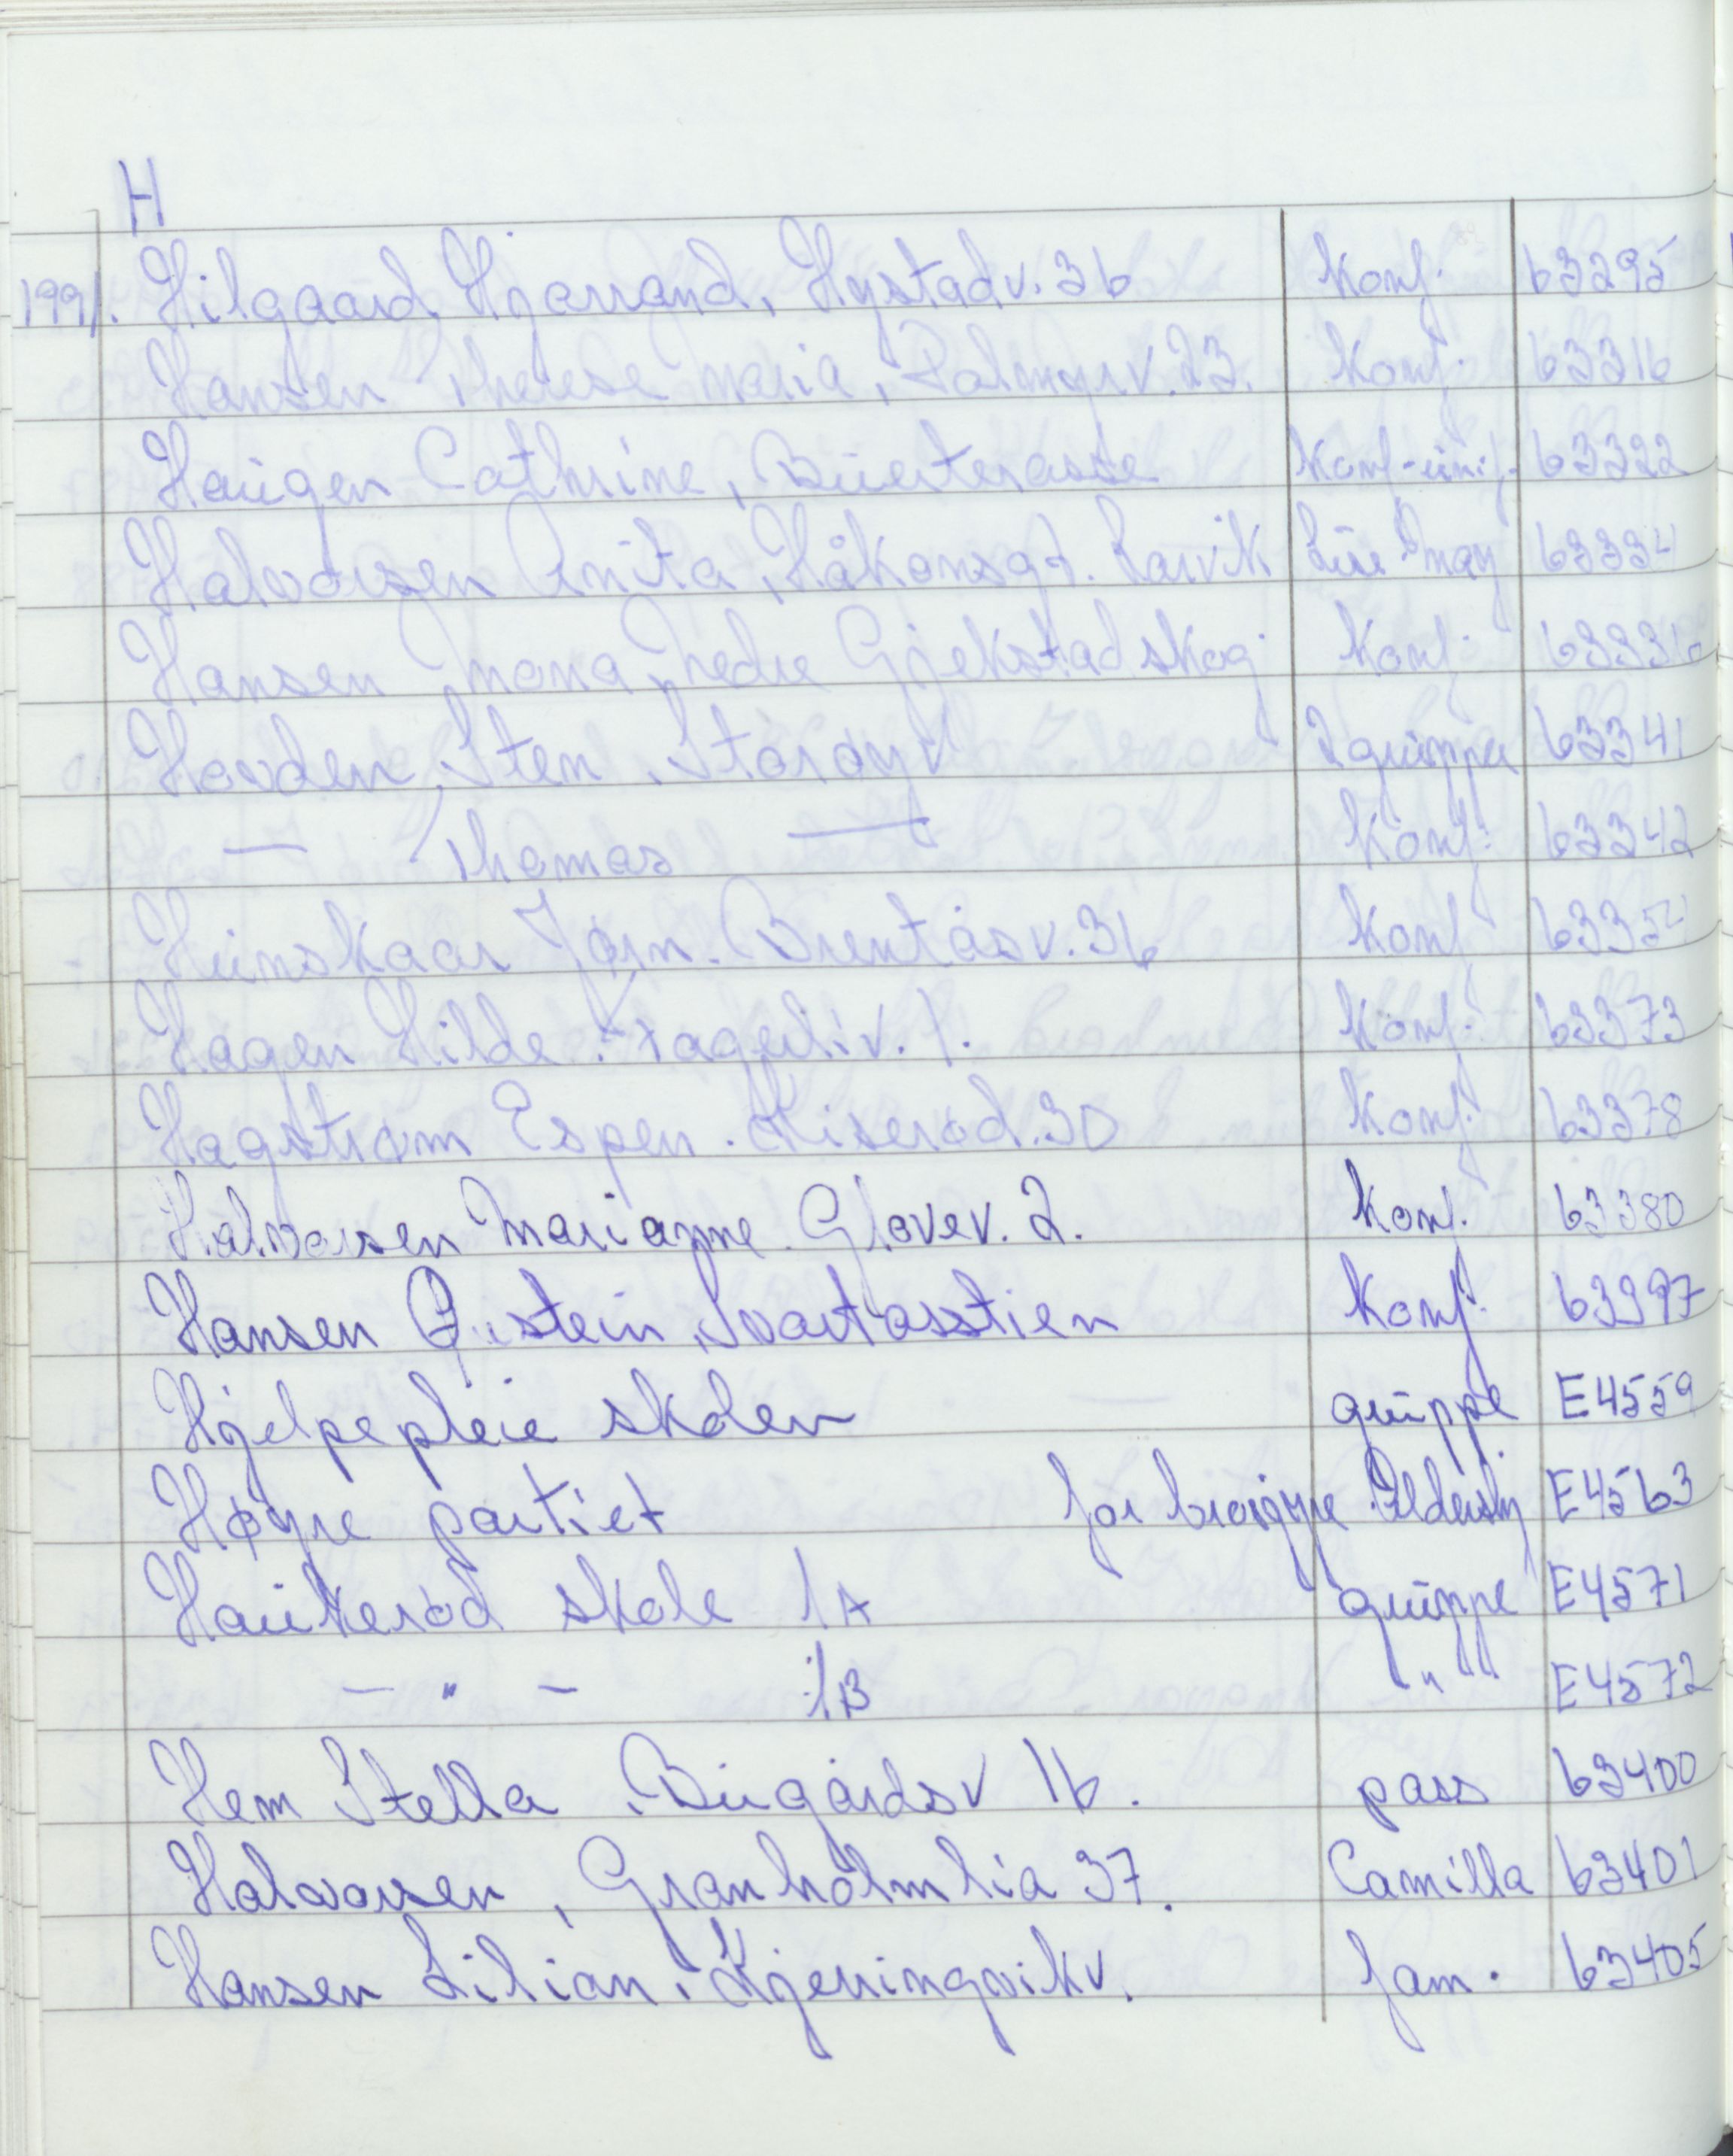 H
1991. Hilgaard Hjerrand, Hystadv. 36 Konf. 63295
Hansen Therese Maria, Palmyrv. 23. Konf. 63316
Haugen Cathrine, Bueterasse Konf-unif. 63322
Halvorsen Anita, Håkonsgt. Larvik Line May 63334
Hansen Mona, Nedre Gjekstad skog Konf. 63336
Hovden, Sten, Storøyv 2 gruppe 63341
— Thomas — Konf. 63342
Huinskaar Jørn. Brentåsv. 36 Konf. 6335
Hagen Hilde. Fagerliv. 1. Konf. 63373
Hagstrøm Espen. Kiserød. 30 Konf. 63378
Halvorsen Marianne. Glovev. 2. Konf. 63380
Hansen Øistein, Svartasstien Konf. 63397
Hjelpepleie skolen gruppe E4559
Høyre partiet for brosjyre. E4563
Haukerød skole 1A gruppe E4571
— " — 1B " E4572
Hem Stella, Bugårdsv 16. pass 63400
Halvorsen, Granholmlia 37. Camilla 63401
Hansen Lilian, Kjerringvikv. fam. 63405